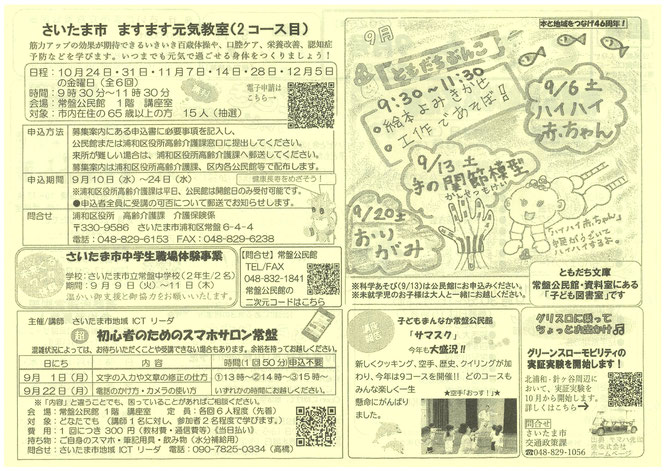 さいたま市 ますます元気教室(2コース目)
筋力アップの効果が期待できるいきいき百歳体操や、口腔ケア、栄養改善、認知症
予防などを学びます。いつまでも元気で過ごせる身体をつくりましょう!
日程:10月24日・31日・11月7日・14日・28日・12月5日
の金曜日(全6回)
時間:9時30分~11時30分
会場:常盤公民館 1階 講座室
対象:市内在住の65歳以上の方 15人(抽選)
電子申請は
こちら→
申込方法
募集案内にある申込書に必要事項を記入し、
公民館または浦和区役所高齢介護課窓口に提出してください。
来所が難しい場合は、浦和区役所高齢介護課へ郵送してください。
募集案内は浦和区役所高齢介護課、区内各公民館等で配布します。
申込期間
9月10日(水)~24日(水)
健康長寿をめざそう!
※浦和区役所高齢介護課は平日、公民館は開館日のみ受付可能です。
●申込者全員に受講の可否について郵送でお知らせします。
問合せ
浦和区役所 高齢介護課 介護保険係
〒330-9586 さいたま市浦和区常盤6-4-4
電話:048-829-6153 FAX:048-829-6238
さいたま市中学生職場体験事業
学校:さいたま市立常盤中学校(2年生/2名)
期間:9月9日(火)~11日(木)
温かい御支援と御協力をお願いいたします。
【問合せ】常盤公民館
TEL/FAX
048-832-1841
常盤公民館の
二次元コードはこちら
主催/講師 さいたま市地域ICTリーダ
超 初心者のためのスマホサロン常盤
混雑状況によっては、お待ちいただくことや受講できない場合もあります。余裕を持ってお越しください。
日にち 内容 時間(1回50分) 申込不要
9月1日(月) 文字の入力や文章の修正の仕方 ①13時~②14時~③15時~
9月22日(月) 電話のかけ方・カメラの使い方 いずれかの時間にお越しください。
※「内容」と違うことでも、困っていることがあればご相談ください。
会場:常盤公民館 1階 講座室 定員:各回6人程度(先着)
対象:どなたでも(講師1名に対し、参加者2名程度で学びます。)
費用:1回につき300円(教材費・通信費等)《当日払い》
持ち物:ご自身のスマホ・筆記用具・飲み物(水分補給用)
問合せ:さいたま市地域ICTリーダ 電話:090-7825-0334(高橋)
本と地域をつなげ46周年!
9月
ともだちぶんこ
9:30~11:30
絵本よみきかせ
工作であそぼ!!
9/6土
ハイハイ
赤ちゃん
9/13土
手の関節模型
かんせつもけい
9/20土
おりがみ
「ハイハイ赤ちゃん」
※科学あそび(9/13)は公民館にお申込みください。
※未就学児のお子様は大人と一緒にお越しください。
ともだち文庫
常盤公民館・資料室にある
「子ども図書室」です
子どもまんなか常盤公民館
「サマスク」
今年も大盛況!!
新しくクッキング、空手、歴史、クイリングが加
わり、今年は9コースを開催!! どのコースも
みんな楽しく一生
懸命にがんばり
ました。
★空手「おっす!」★
グリスロに乗って
ちょっとお出かけ
グリーンスローモビリティの
実証実験を開始します!
北浦和・針ヶ谷周辺に
おいて、実証実験を
10月から開始します。
詳しくはこちら→
【問合せ】
さいたま市
交通政策課
☎048-829-1056